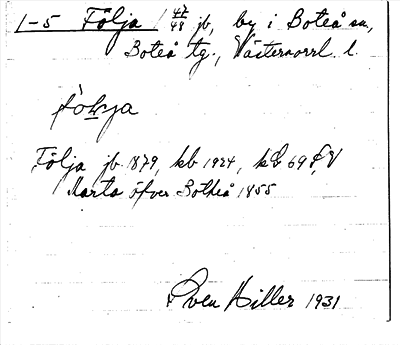 1-5 Följa 47/48 jb, by i Boteå sn,
Boteå tg., Västernorrl. l.
Följa jb 1879, kb 1924, kb 69
Karta öfver Botheå 1855
Sven Hiller 1931